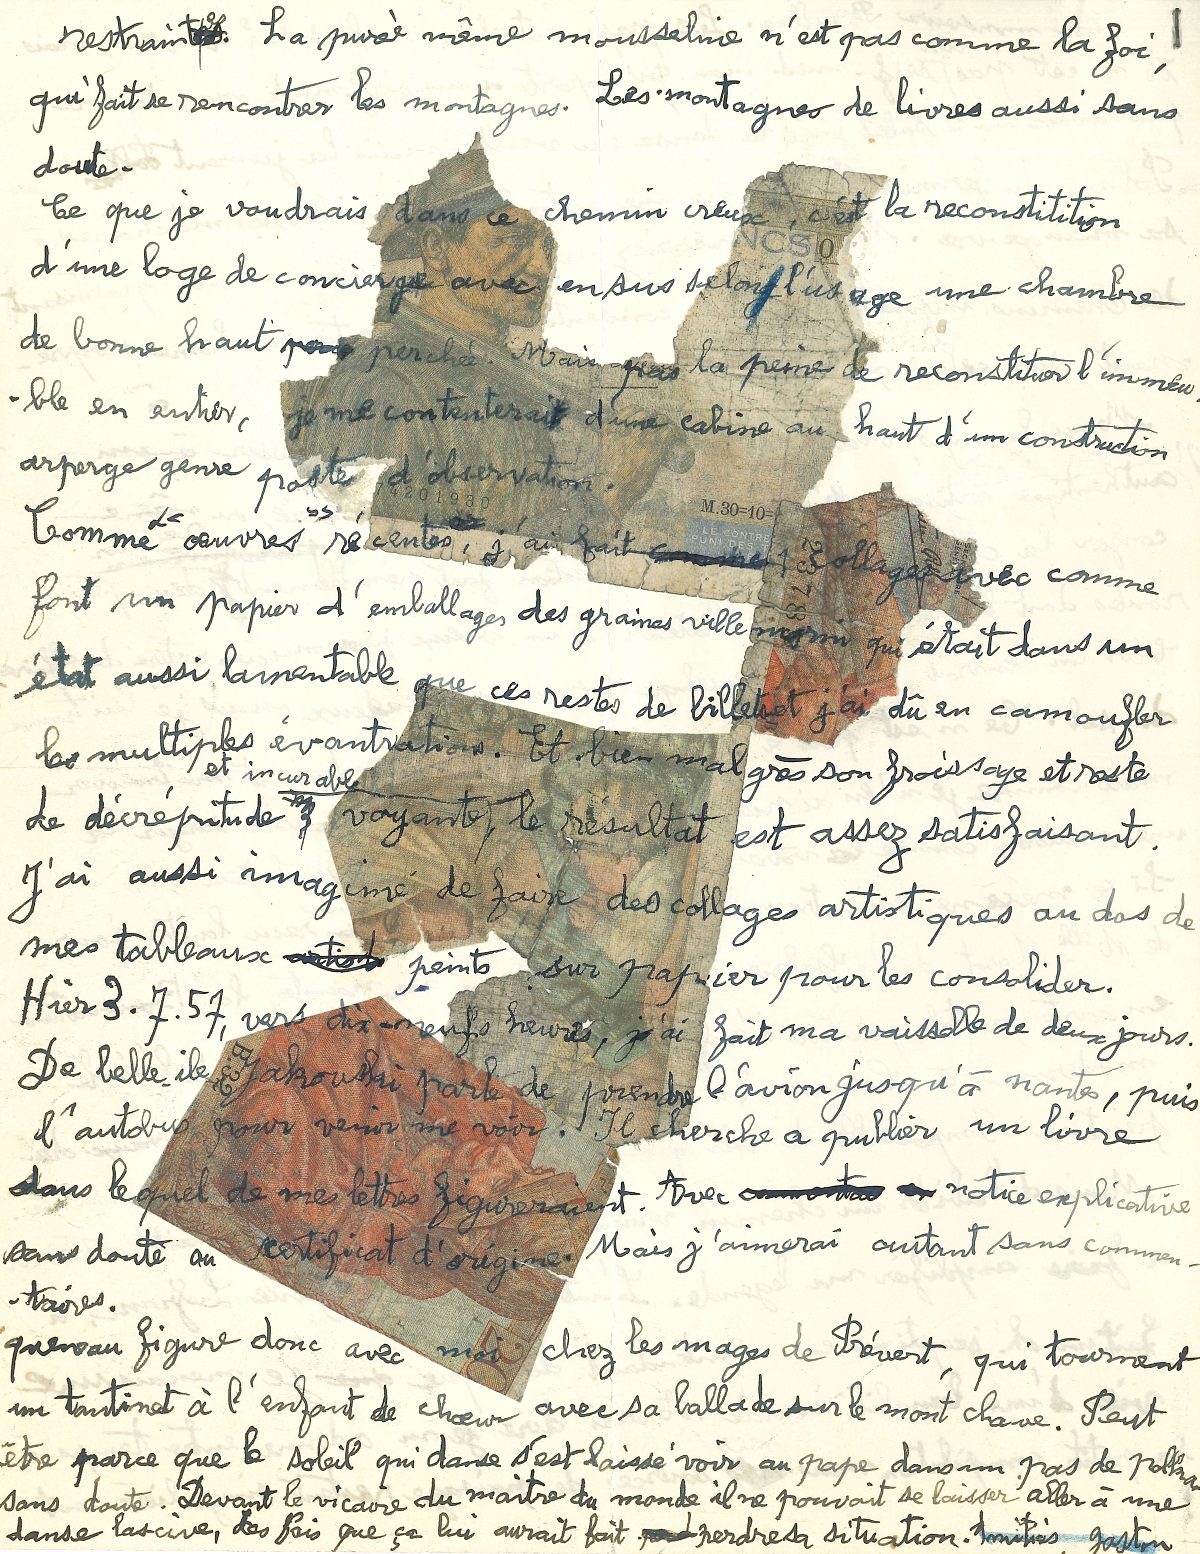 restraintes. La purée même mousseline n'est pas comme la foi,
qui fait se rencontrer les montagnes. Les montagnes de livres aussi sans
doute.
Ce que je voudrais dans ce chemin creux, c'est la reconstitition
d'une loge de concierge avec en sus selon l'usage une chambre
de bonne haut perchée. Mais pas la peine de reconstituer l'immeu
-ble en entier, je me contenterai d'une cabine au haut d'un construction
asperge genre poste d'observation.
Comme "de oeuvres" récentes, j'ai fait 1 collage avec comme
font un papier d'emballages des graines villemorin qui était dans un
état aussi lamentable que ces restes de billets et j'ai dû en camoufler
les multiples évantrations. Et bien malgrès son froissage et reste
et incurable
de décrépitude voyante, le résultat est assez satisfaisant.
J'ai aussi imaginé de faire des collages artistiques au dos de
mes tableaux peints sur papier pour les consolider.
Hier 3.7.57, vers dix-neufs heures, j'ai fait ma vaisselle de deux jours.
De belle-ile Jakouski parle de prendre l'avion jusqu'à nantes, puis
l'autobus pour venir me voir. Il cherche a publier un livre
dans lequel de mes lettres figureraient. Avec notice explicative
sans doute ou certificat d'origine. Mais j'aimerai autant sans commen-
-taires.
queneau figure donc avec moi chez les mages de Prévert, qui tournent
un tantinet à l'enfant de chœur avec sa ballade sur le mont chave. Peut
être parce que le soleil qui danse s'est laissé voir au pape dans un pas de polka
sans doute. Devant le vicaire du maitre du monde il ne pouvait se laisser aller à une
danse lascive, des fois que ça lui aurait fait perdre sa situation. Amitiés, gaston
NCS 0
74201930
M.30=10=
LE CONTRE
PUNI DES
B.32